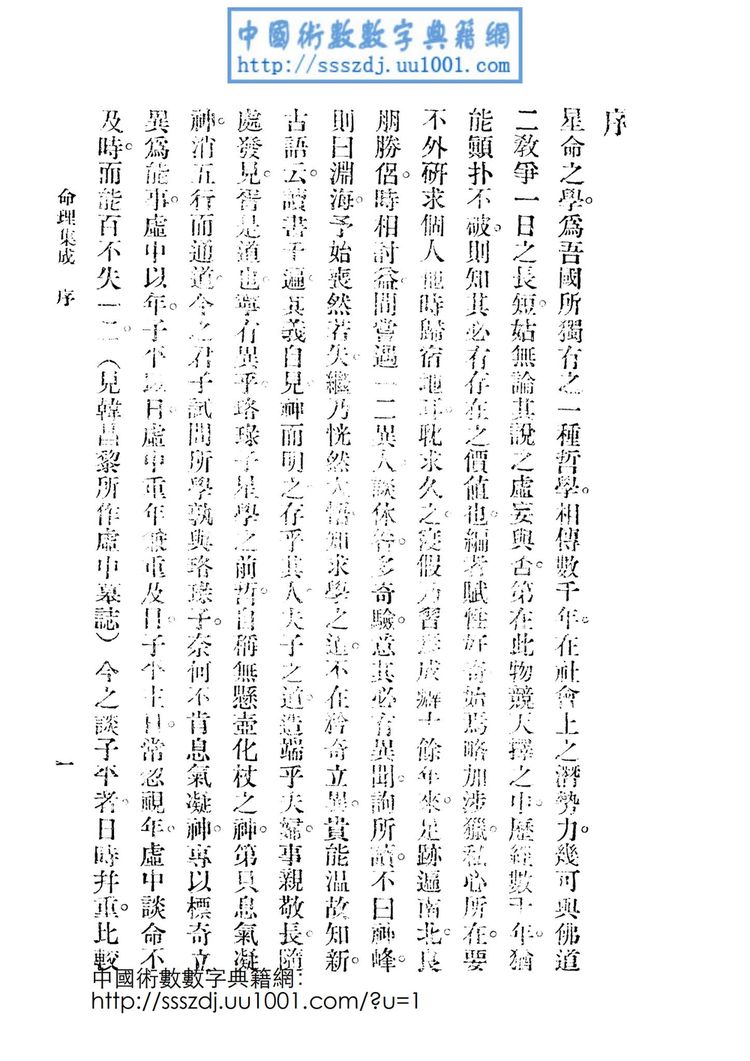 中國術數數字典籍網
http://ssszdj.uu1001.com
序
星命之學。爲吾國所獨有之一種哲學。相傳數千年。在社會上之潛勢力。幾可與佛道
二敎爭一日之長短。姑無論其說之虛妄與否。第在此物競天擇之中。歷經數千年。猶
能顚扑不破。則知其必有存在之價値也。編者賦性好奇。始焉略加涉獵。私心所在。要
不外研求個人他時歸宿地耳。耽求久之。寖假乃習爲成癖。十餘年來。足跡遍南北。良
朋勝侶。時相討益。間嘗遇一二異人。談休咎多奇驗。意其必有異聞。詢所讀。不曰神峰。
則曰淵海。予始喪然若失。繼乃恍然大悟。知求學之道。不在矜奇立異。貴能溫故知新。
古語云。讀書千遍。其義自見。神而明之。存乎其人。夫子之道。造端乎夫婦。事親敬長。隨
處發見。胥是道也。寧有異乎。珞琭子星學之前哲。自稱無懸壺化杖之神。第只息氣凝
神。消五行而通道。今之君子。試問所學孰與珞琭子。奈何不肯息氣凝神。專以標奇立
異爲能事。虛中以年。子平以日。虛中重年兼重及日。子平主日。常忽視年。虛中談命。不
及時。而能百不失一二（見韓昌黎所作虛中墓誌）今之談子平者。日時幷重。比較
命理集成 序
一
中國術數數字典籍網：
http://ssszdj.uu1001.com/?u=1